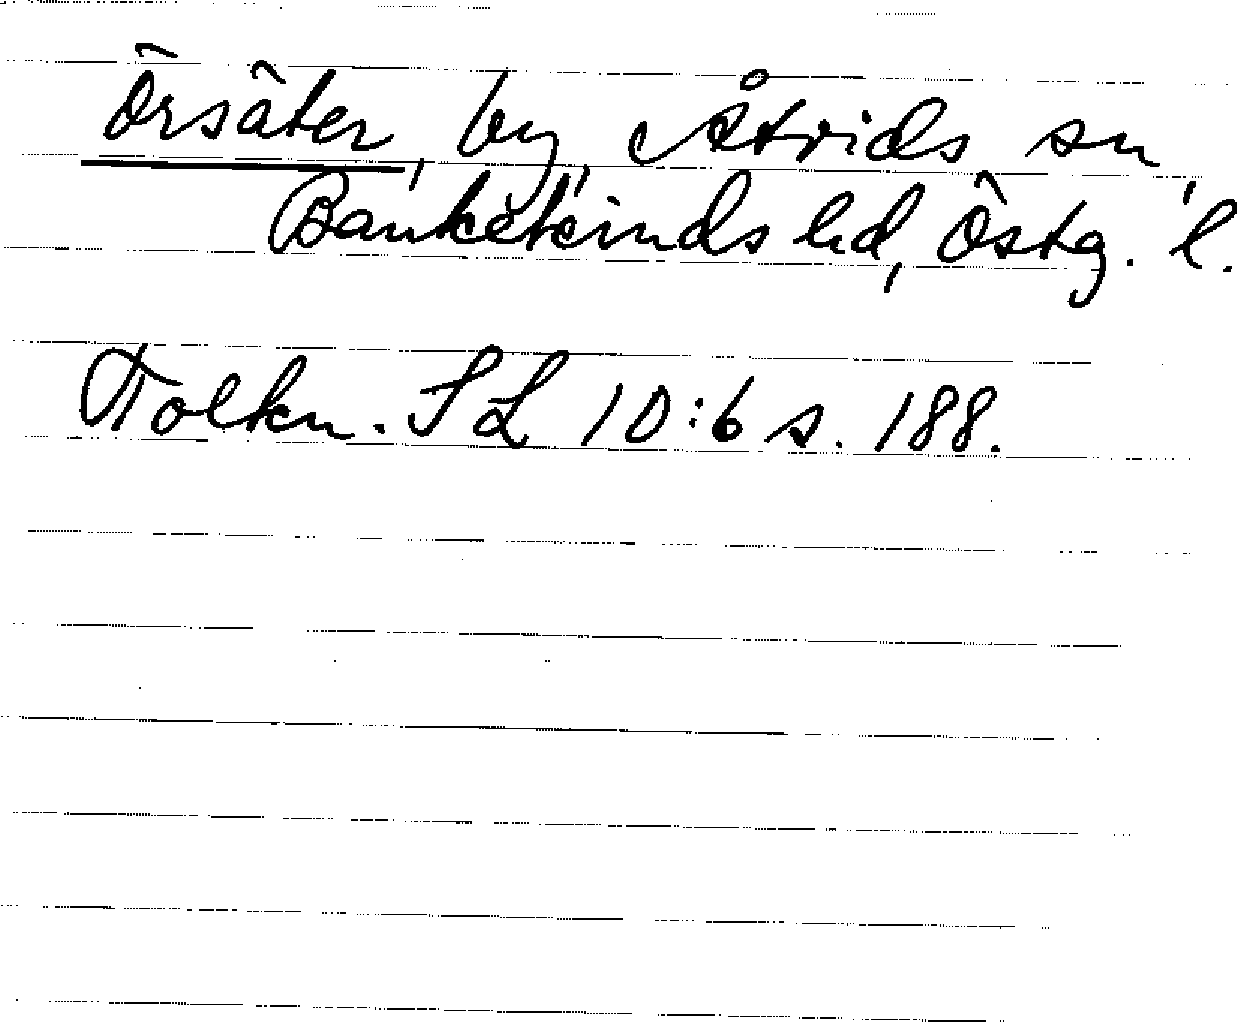 Örsäter, by, Åtvids sn,
Bankekinds hd, Östg. l.
Tolkn. SL 10:6 s. 188.